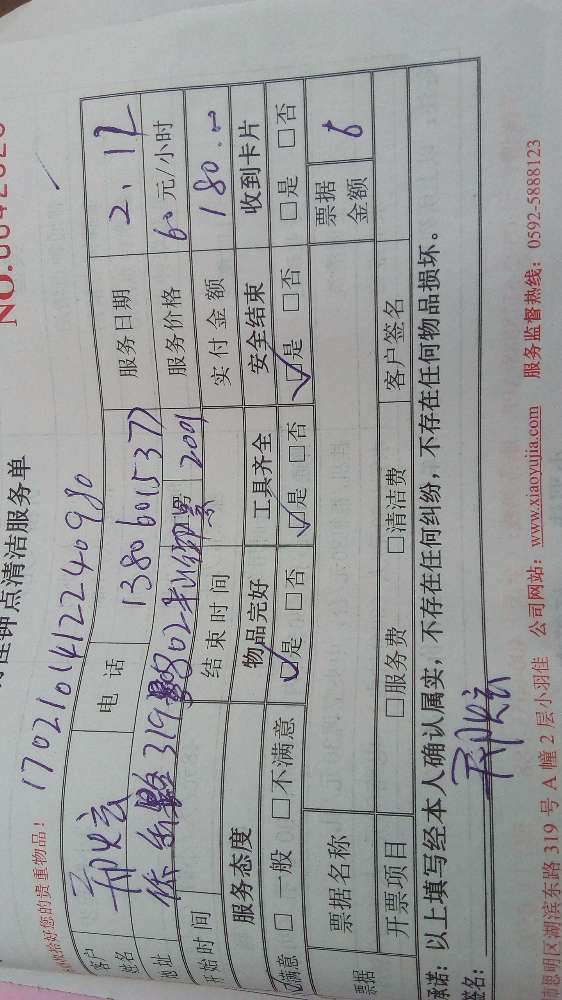 钟点清洁服务单
NO.0042020
您的贵重物品！
1702101412240980
客户姓名 电话 13806015377 服务日期 2.12
地址 319 802 服务价格 60元/小时
开始时间 结束时间 2001 实付金额 180.00
服务态度 物品完好 工具齐全 安全结束 收到卡片
☑满意 □一般 □不满意 ☑是 □否 ☑是 □否 ☑是 □否 □是 □否
票据 票据名称 票据金额
开票项目 □服务费 □清洁费 客户签名
承诺：以上填写经本人确认属实，不存在任何纠纷，不存在任何物品损坏。
签名：
思明区湖滨东路 319 号 A 幢 2 层小羽佳 公司网站：www.xiaoyujia.com 服务监督热线：0592-5888123